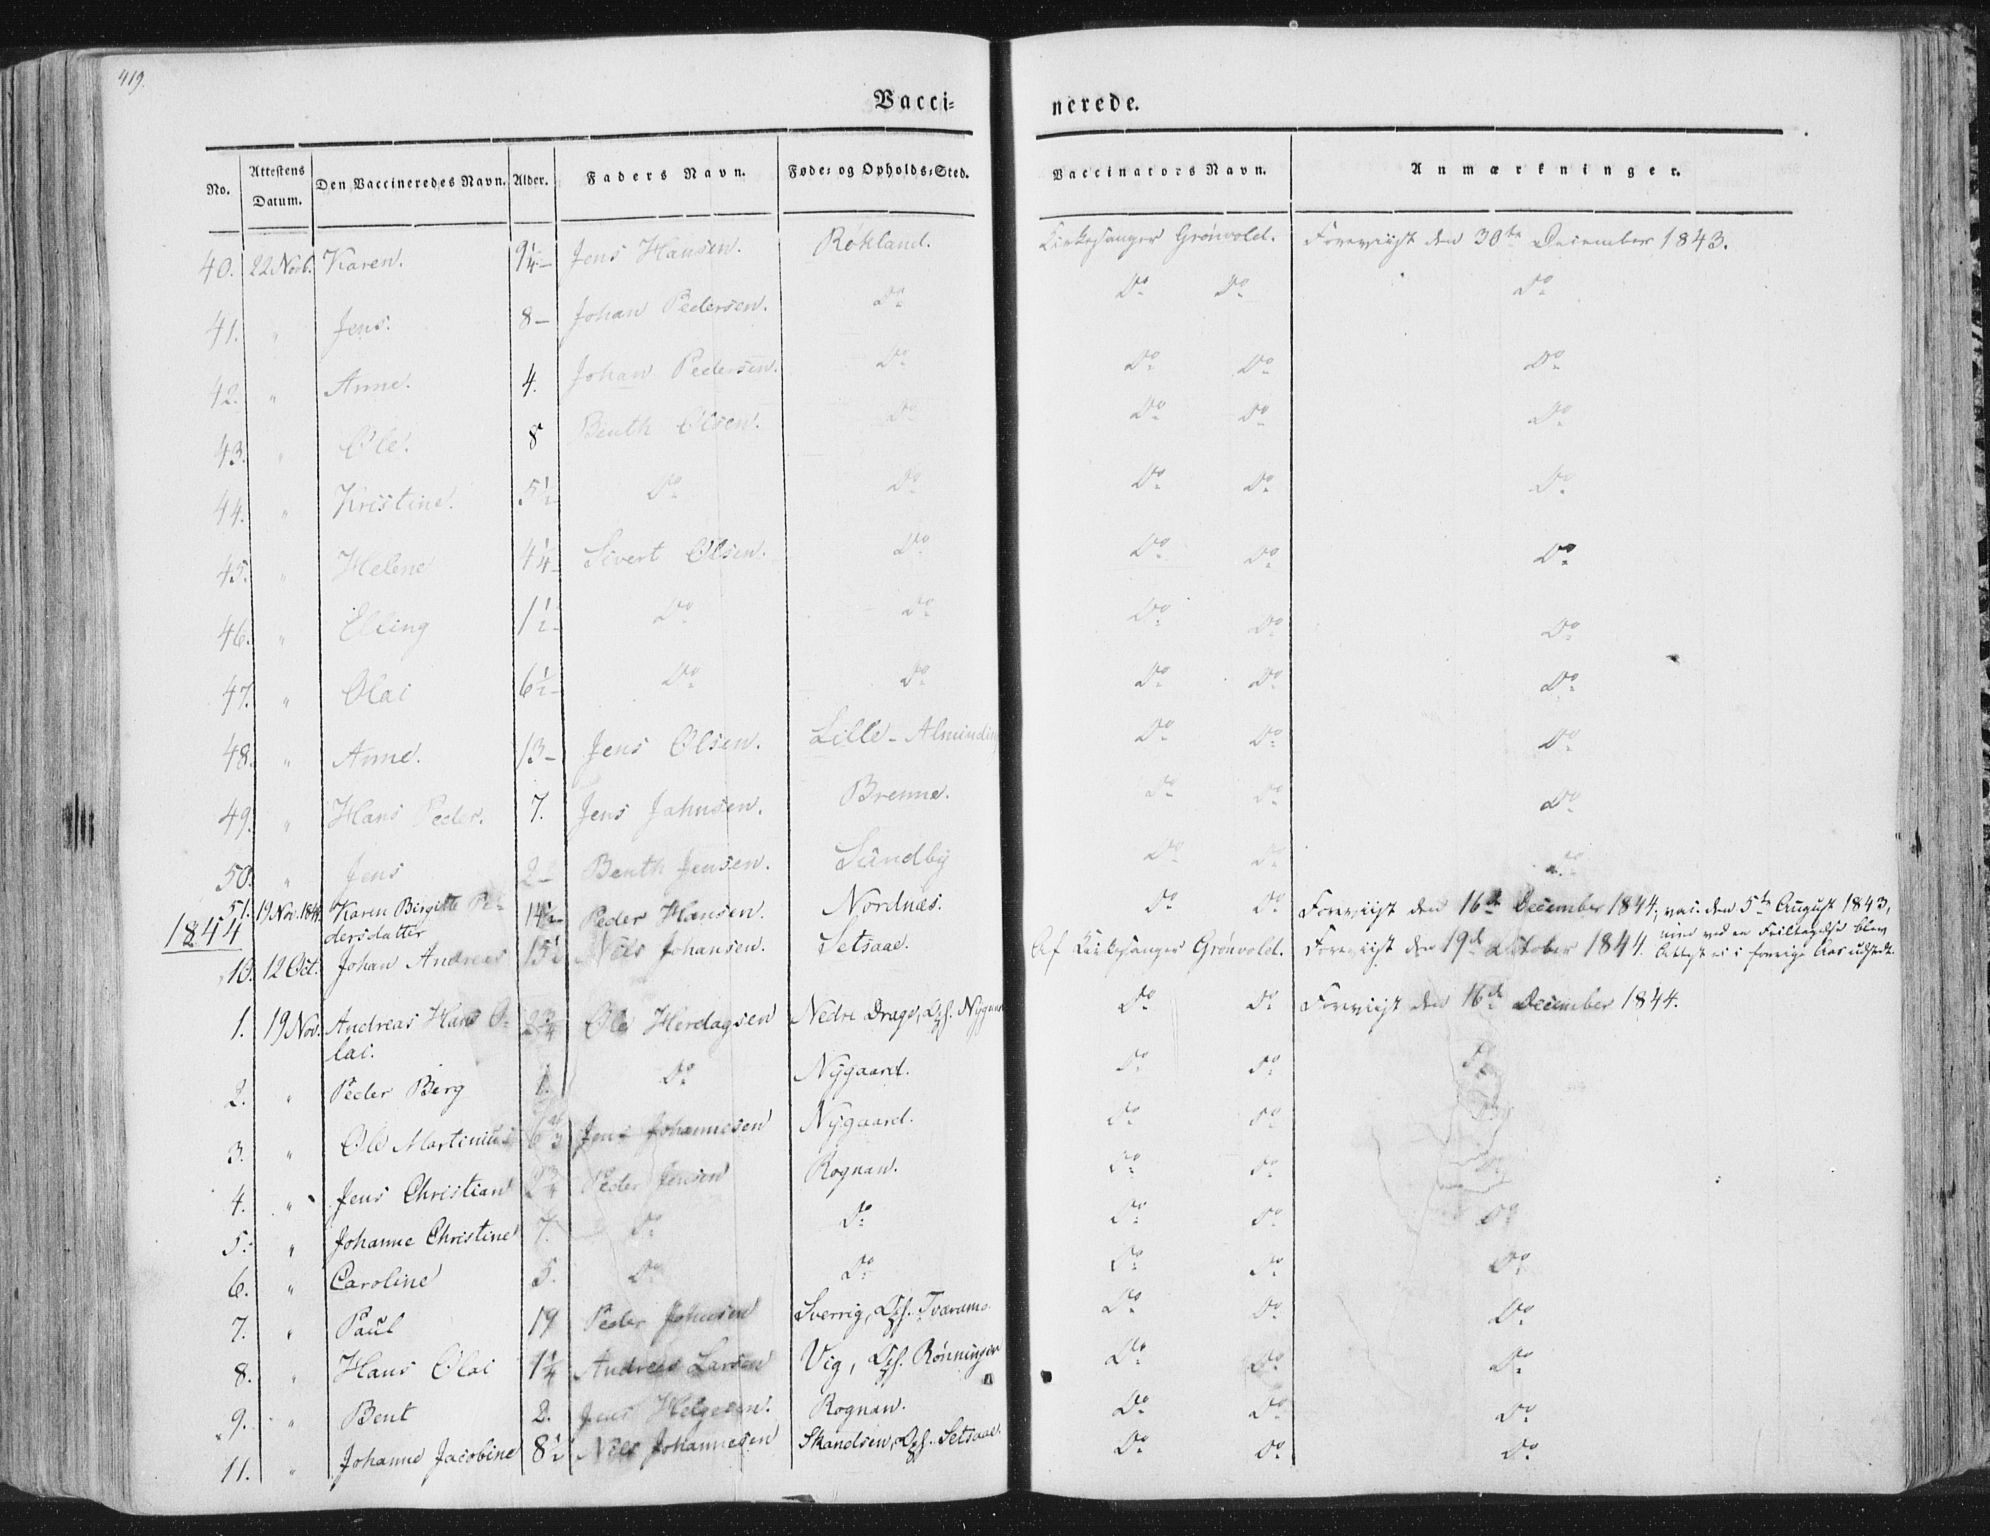 419.
Vacci= nerede.
No. Attestens Datum. Den Vaccineredes Navn. Alder. Faders Navn. Føde= og Opholds=Sted. Vaccinators Navn. Anmærkninger.
40. 22 Novb. Karen. 9 1/4 – Jens Hansen. Røkland. Kirkesanger Grönvold. Foreviist den 30te December 1843.
41. " Jens. 8 – Johan Pedersen. Do Do Do Do
42. " Anne. 4. Johan Pedersen. Do Do Do Do
43. " Ole. 8 Benth Olsen. Do Do Do Do
44. " Kristine. 5 1/2 Do Do Do Do Do
45. " Helene 4 1/4 – Sivert Olsen. Do Do Do Do
46. " Elling 1 1/2 – Do Do Do Do Do
47. " Olai 6 1/2 – Do Do Do Do Do
48. " Anne. 13 – Jens Olsen. Lille-Alminding Do Do Do
49. " Hans Peder. 7. Jens Jahnsen. Brenne. Do Do Do
50. " Jens 2 – Benth Jensen. Sundby Do Do Do
51. 19 Nov. 1844 Karen Birgitte Pe- 14 1/2 Peder Hansen. Nordnæs. Do Do Foreviist den 16de December 1844, vac. den 5te August 1843,
dersdatter
men ved en Feiltagelse blev
1844
10. 12 Oct. Johan Andreas 15 1/2 Nils Johansen. Setsaae. Af Kirkesanger Grönvold. Foreviist den 19de October 1844. Attest ei i forrige Aar udstedt.
1. 19 Nov. Andreas Hans O- 2 3/4 Ole Herdagsen Nedre Drage, Opf. Nygaard Do Do Foreviist den 16de December 1844.
lai.
2. " Peder Berg 1. Do Nygaard. Do Do Do
3. " Ole Martinus 6 2/3 Jens Johannesen Nygaard. Do Do Do
4. " Jens Christian 2 3/4 Peder Jensen Rognan. Do Do Do
5. " Johanne Christine 7. Do Do Do Do Do
6. " Caroline 5. Do Do Do Do Do
7. " Paul 19 Peder Johnsen Sverrig, Opf. Tvarame. Do Do Do
8. " Hans Olai 1 1/4 Andreas Larsen Vig, Opf. Rönningen Do Do Do
9. " Bent 2. Jens Helgesen. Rognan. Do Do Do
11. " Johanne Jacobine 8 1/2 Nils Johannesen Skandsen, Opf. Setsaae. Do Do Do